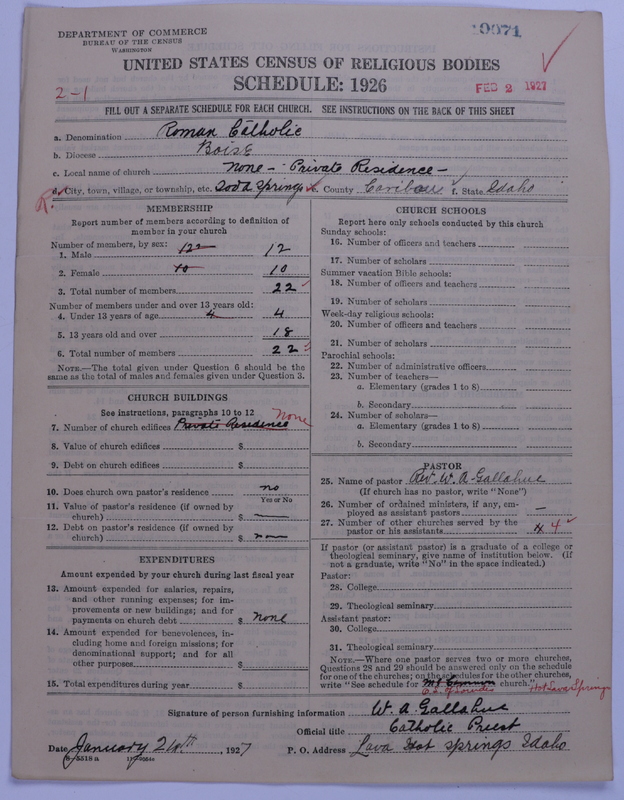 DEPARTMENT OF COMMERCE
BUREAU OF THE CENSUS
WASHINGTON
19071
UNITED STATES CENSUS OF RELIGIOUS BODIES
SCHEDULE: 1926
2-1
FEB 2 1927
FILL OUT A SEPARATE SCHEDULE FOR EACH CHURCH. SEE INSTRUCTIONS ON THE BACK OF THIS SHEET
a. Denomination Roman Catholic
b. Diocese Boise
c. Local name of church none - Private Residence -
R. d. City, town, village, or township, etc. Soda Springs e. County Caribou f. State Idaho
MEMBERSHIP
Report number of members according to definition of
member in your church
Number of members, by sex:
1. Male 12 12
2. Female 10 10
3. Total number of members 22
Number of members under and over 13 years old:
4. Under 13 years of age 4 4
5. 13 years old and over 18
6. Total number of members 22
NOTE.—The total given under Question 6 should be
the same as the total of males and females given under Question 3.
CHURCH BUILDINGS
See instructions, paragraphs 10 to 12
none
7. Number of church edifices Private Residence
8. Value of church edifices $
9. Debt on church edifices $
10. Does church own pastor's residence no
Yes or No
11. Value of pastor's residence (if owned by
church) $
12. Debt on pastor's residence (if owned by
church) $
EXPENDITURES
Amount expended by your church during last fiscal year
13. Amount expended for salaries, repairs,
and other running expenses; for im-
provements or new buildings; and for
payments on church debt $ none
14. Amount expended for benevolences, in-
cluding home and foreign missions; for
denominational support; and for all
other purposes $
15. Total expenditures during year $
CHURCH SCHOOLS
Report here only schools conducted by this church
Sunday schools:
16. Number of officers and teachers
17. Number of scholars
Summer vacation Bible schools:
18. Number of officers and teachers
19. Number of scholars
Week-day religious schools:
20. Number of officers and teachers
21. Number of scholars
Parochial schools:
22. Number of administrative officers
23. Number of teachers—
a. Elementary (grades 1 to 8)
b. Secondary
24. Number of scholars—
a. Elementary (grades 1 to 8)
b. Secondary
PASTOR
25. Name of pastor Rev. W. A. Gallahue
(If church has no pastor, write "None")
26. Number of ordained ministers, if any, em-
ployed as assistant pastors —
27. Number of other churches served by the
pastor or his assistants 4
If pastor (or assistant pastor) is a graduate of a college or
theological seminary, give name of institution below. (If
not a graduate, write "No" in the space indicated.)
Pastor:
28. College
29. Theological seminary
Assistant pastor:
30. College
31. Theological seminary
NOTE.—Where one pastor serves two or more churches,
Questions 28 and 29 should be answered only on the schedule
for one of the churches; on the schedules for the other churches,
write "See schedule for church."
Signature of person furnishing information W. A. Gallahue
Official title Catholic Priest
Date January 24th, 1927 P. O. Address Lava Hot Springs Idaho
8-5518 a